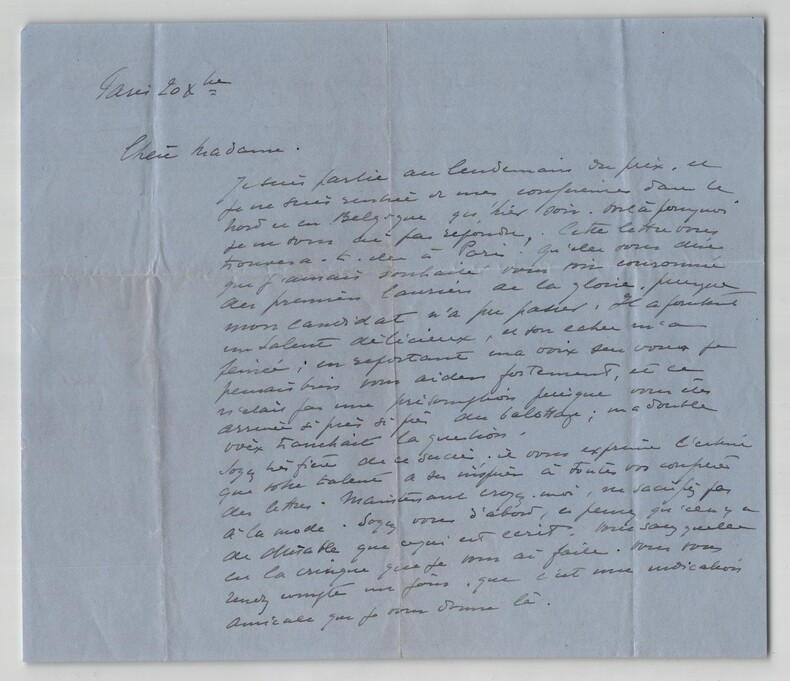 Paris 20 Xbre
Chère Madame.
Je suis partie au lendemain du prix, et
je ne suis rentrée de mes conférences dans le
Nord et en Belgique qu'hier soir. Voilà pourquoi
je ne vous ai pas répondu. Cette lettre vous
trouvera-t-elle à Paris? qu'elle vous dise
que j'aurais souhaité vous voir couronnée
des premiers lauriers de la gloire, puisque
mon candidat n'a pu passer. Il a pourtant
un talent délicieux, et son échec m'a
peinée; en reportant ma voix sur vous je
pensais bien vous aider fortement, et ce
n'était pas une présomption puisque vous êtes
arrivée si près si près du ballottage; ma double
voix tranchait la question.
Soyez très fière de ce succès. il vous exprime l'estime
que votre talent a su inspirer à toutes vos confrères
des lettres. Maintenant croyez-moi, ne sacrifiez pas
à la mode. Soyez vous d'abord, et pensez qu'il n'y a
de durable que ce qui est écrit. vous
en la critique que je vous ai faite. vous vous
rendez compte un jour, que c'est une indication
amicale que je vous donne là.